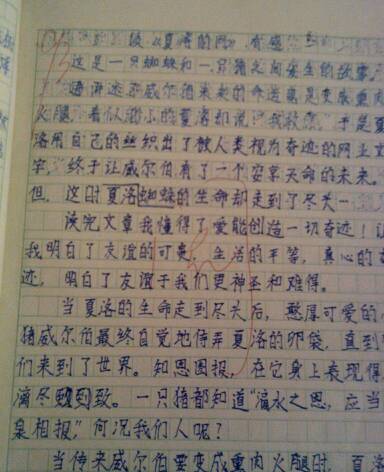 读《夏洛的网》有感
这是一只蜘蛛和一只猪之间发生的故事。
讲述述威尔伯未来的命运就是变成熏肉
火腿，看似渺小的夏洛却说："我救你。"于是夏
洛用自己的丝织出了被人类视为奇迹的网业文
字，终于让威尔伯有了一个安享天命的未来。
但，这时夏洛蜘蛛的生命却走到了尽头
读完文章我懂得了爱能创造一切奇迹！让
我明白了友谊的可贵，生活的平等，真心的奇
迹，明白了友谊于我们更神圣和难得。
当夏洛的生命走到尽头后，憨厚可爱的小
猪威尔伯最终自觉地侍弄夏洛的卵袋，直到
们来到了世界。知恩图报，在它身上表现得
漓尽致。一只猪都知道"滴水之恩，应当
泉相报，"何况我们人呢？
当传来威尔伯要变成熏肉火腿时，夏洛